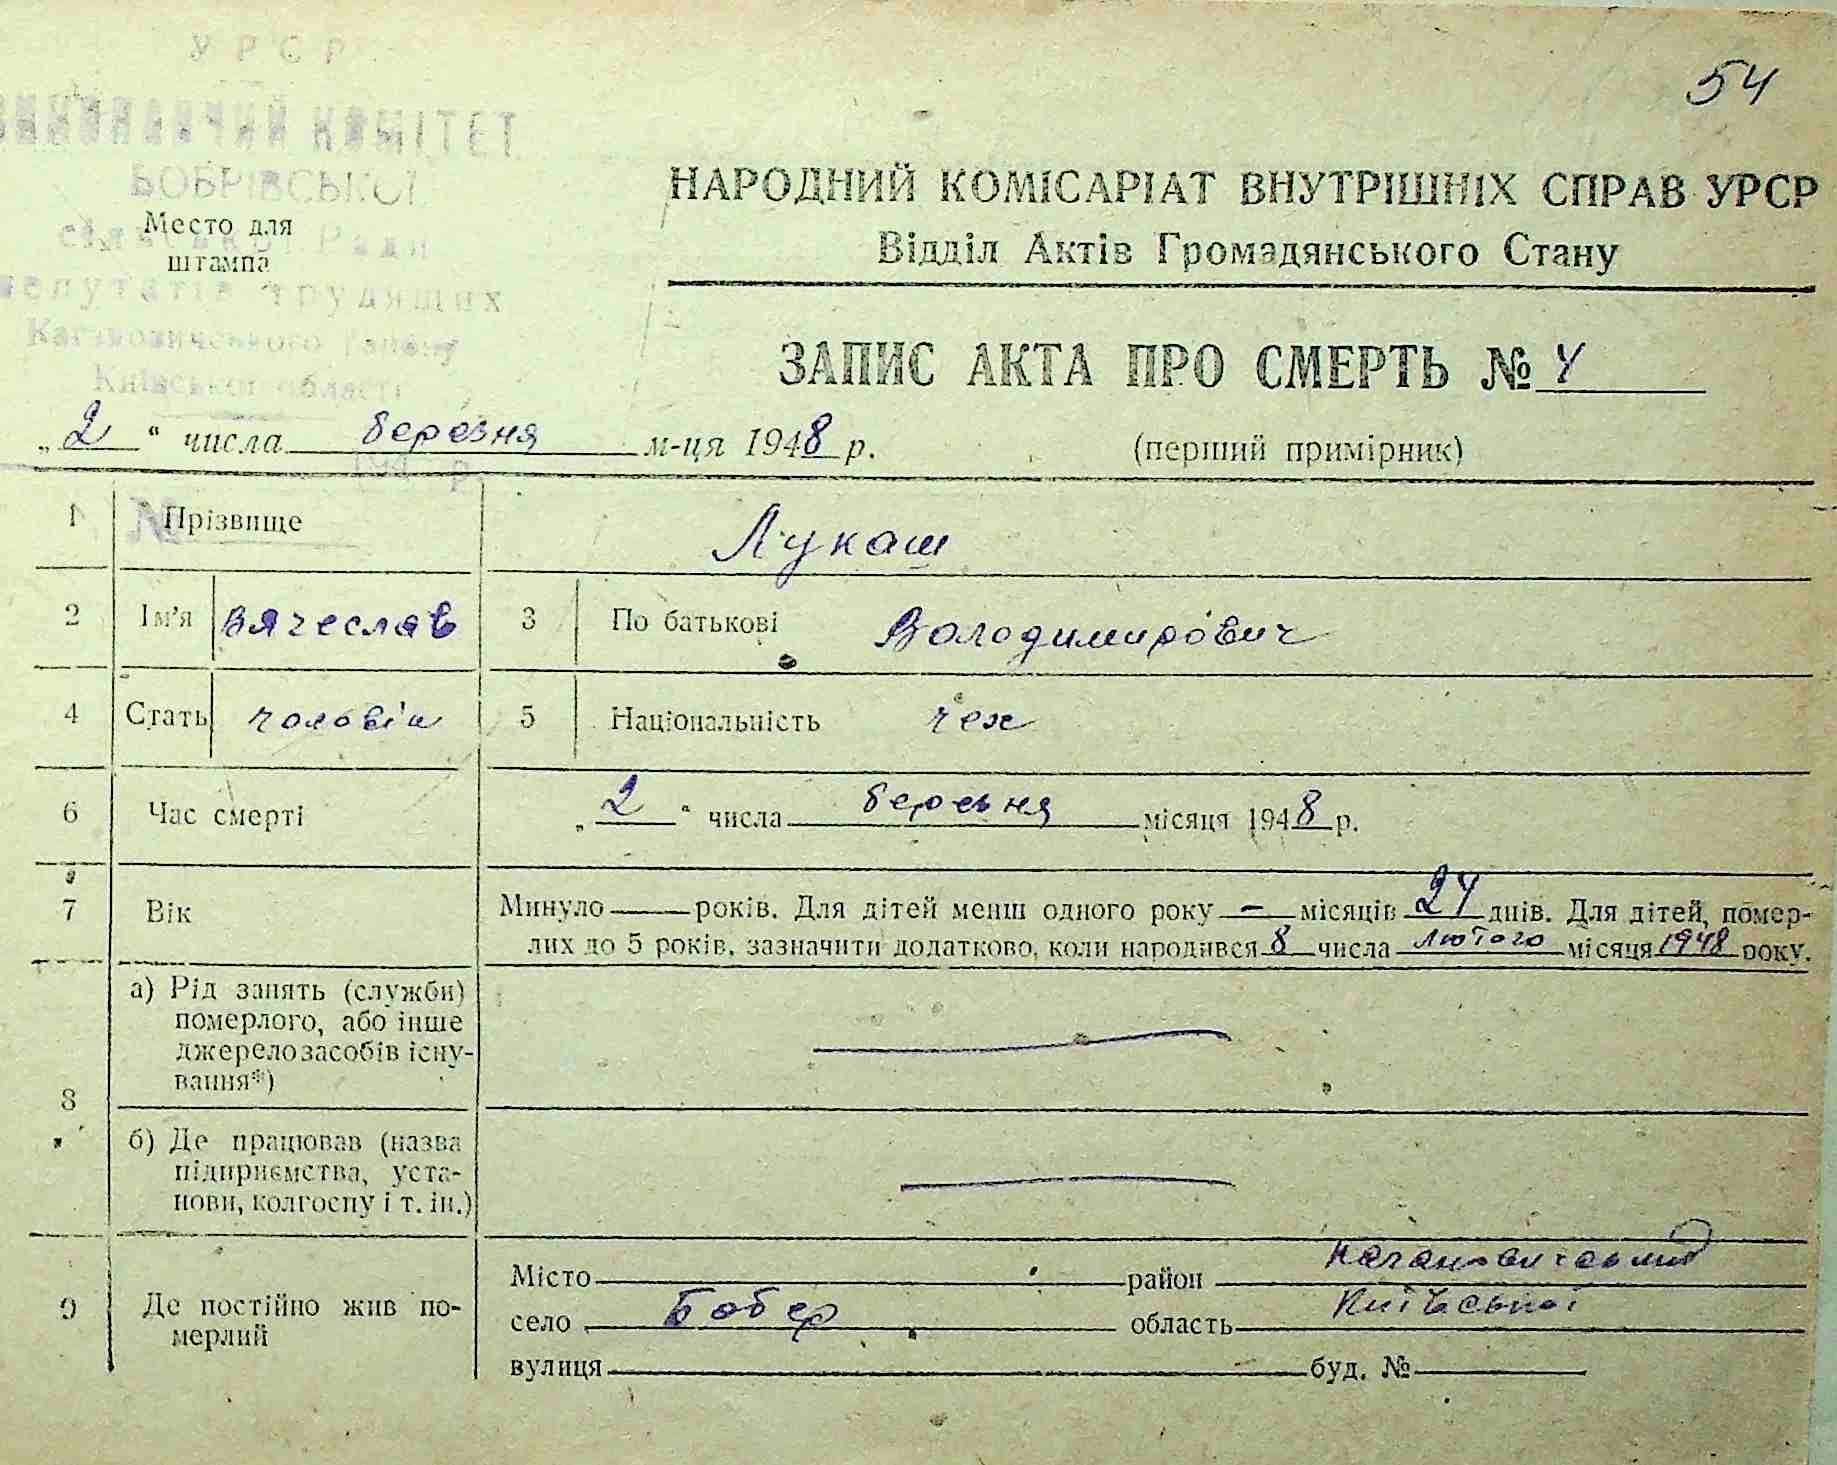 54
УРСР
ВИКОНАВЧИЙ КОМІТЕТ
БОБРІВСЬКОЇ
сільської Ради
депутатів трудящих
Кагановичського району
Київської області
194 р.
№
Место для
штампа
НАРОДНИЙ КОМІСАРІАТ ВНУТРІШНІХ СПРАВ УРСР
Відділ Актів Громадянського Стану
ЗАПИС АКТА ПРО СМЕРТЬ № 4
„2“ числа березня м-ця 1948 р. (перший примірник)
1 Прізвище Лукаш
2 Ім'я Вячеслав 3 По батькові Володимирович
4 Стать чоловік 5 Національність чех
6 Час смерті „2“ числа березня місяця 1948 р.
7 Вік Минуло — років. Для дітей менш одного року — місяців 24 днів. Для дітей, помер-
лих до 5 років, зазначити додатково, коли народився 8 числа лютого місяця 1948 року.
8 а) Рід занять (служби)
померлого, або інше
джерело засобів існу-
вання*) —
б) Де працював (назва
підприємства, уста-
нови, колгоспу і т. ін.) —
9 Де постійно жив по-
мерлий
Місто район Кагановичський
село Бобер область Київської
вулиця буд. №